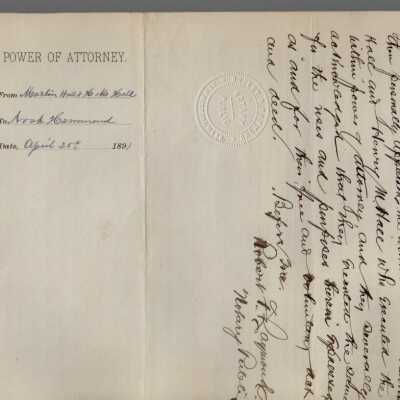 POWER OF ATTORNEY.
From Martin Hall & H. M. Hall
To Noah Hammond
Date, April 25th 1891
then personally appeared the within
Hall and Henry M. Hall who executed the
within power of attorney and they severally
acknowledged that they executed the same
for the uses and purposes therein expressed
as and for their free and voluntary act
and deed.
Before me
Robert
Notary Public